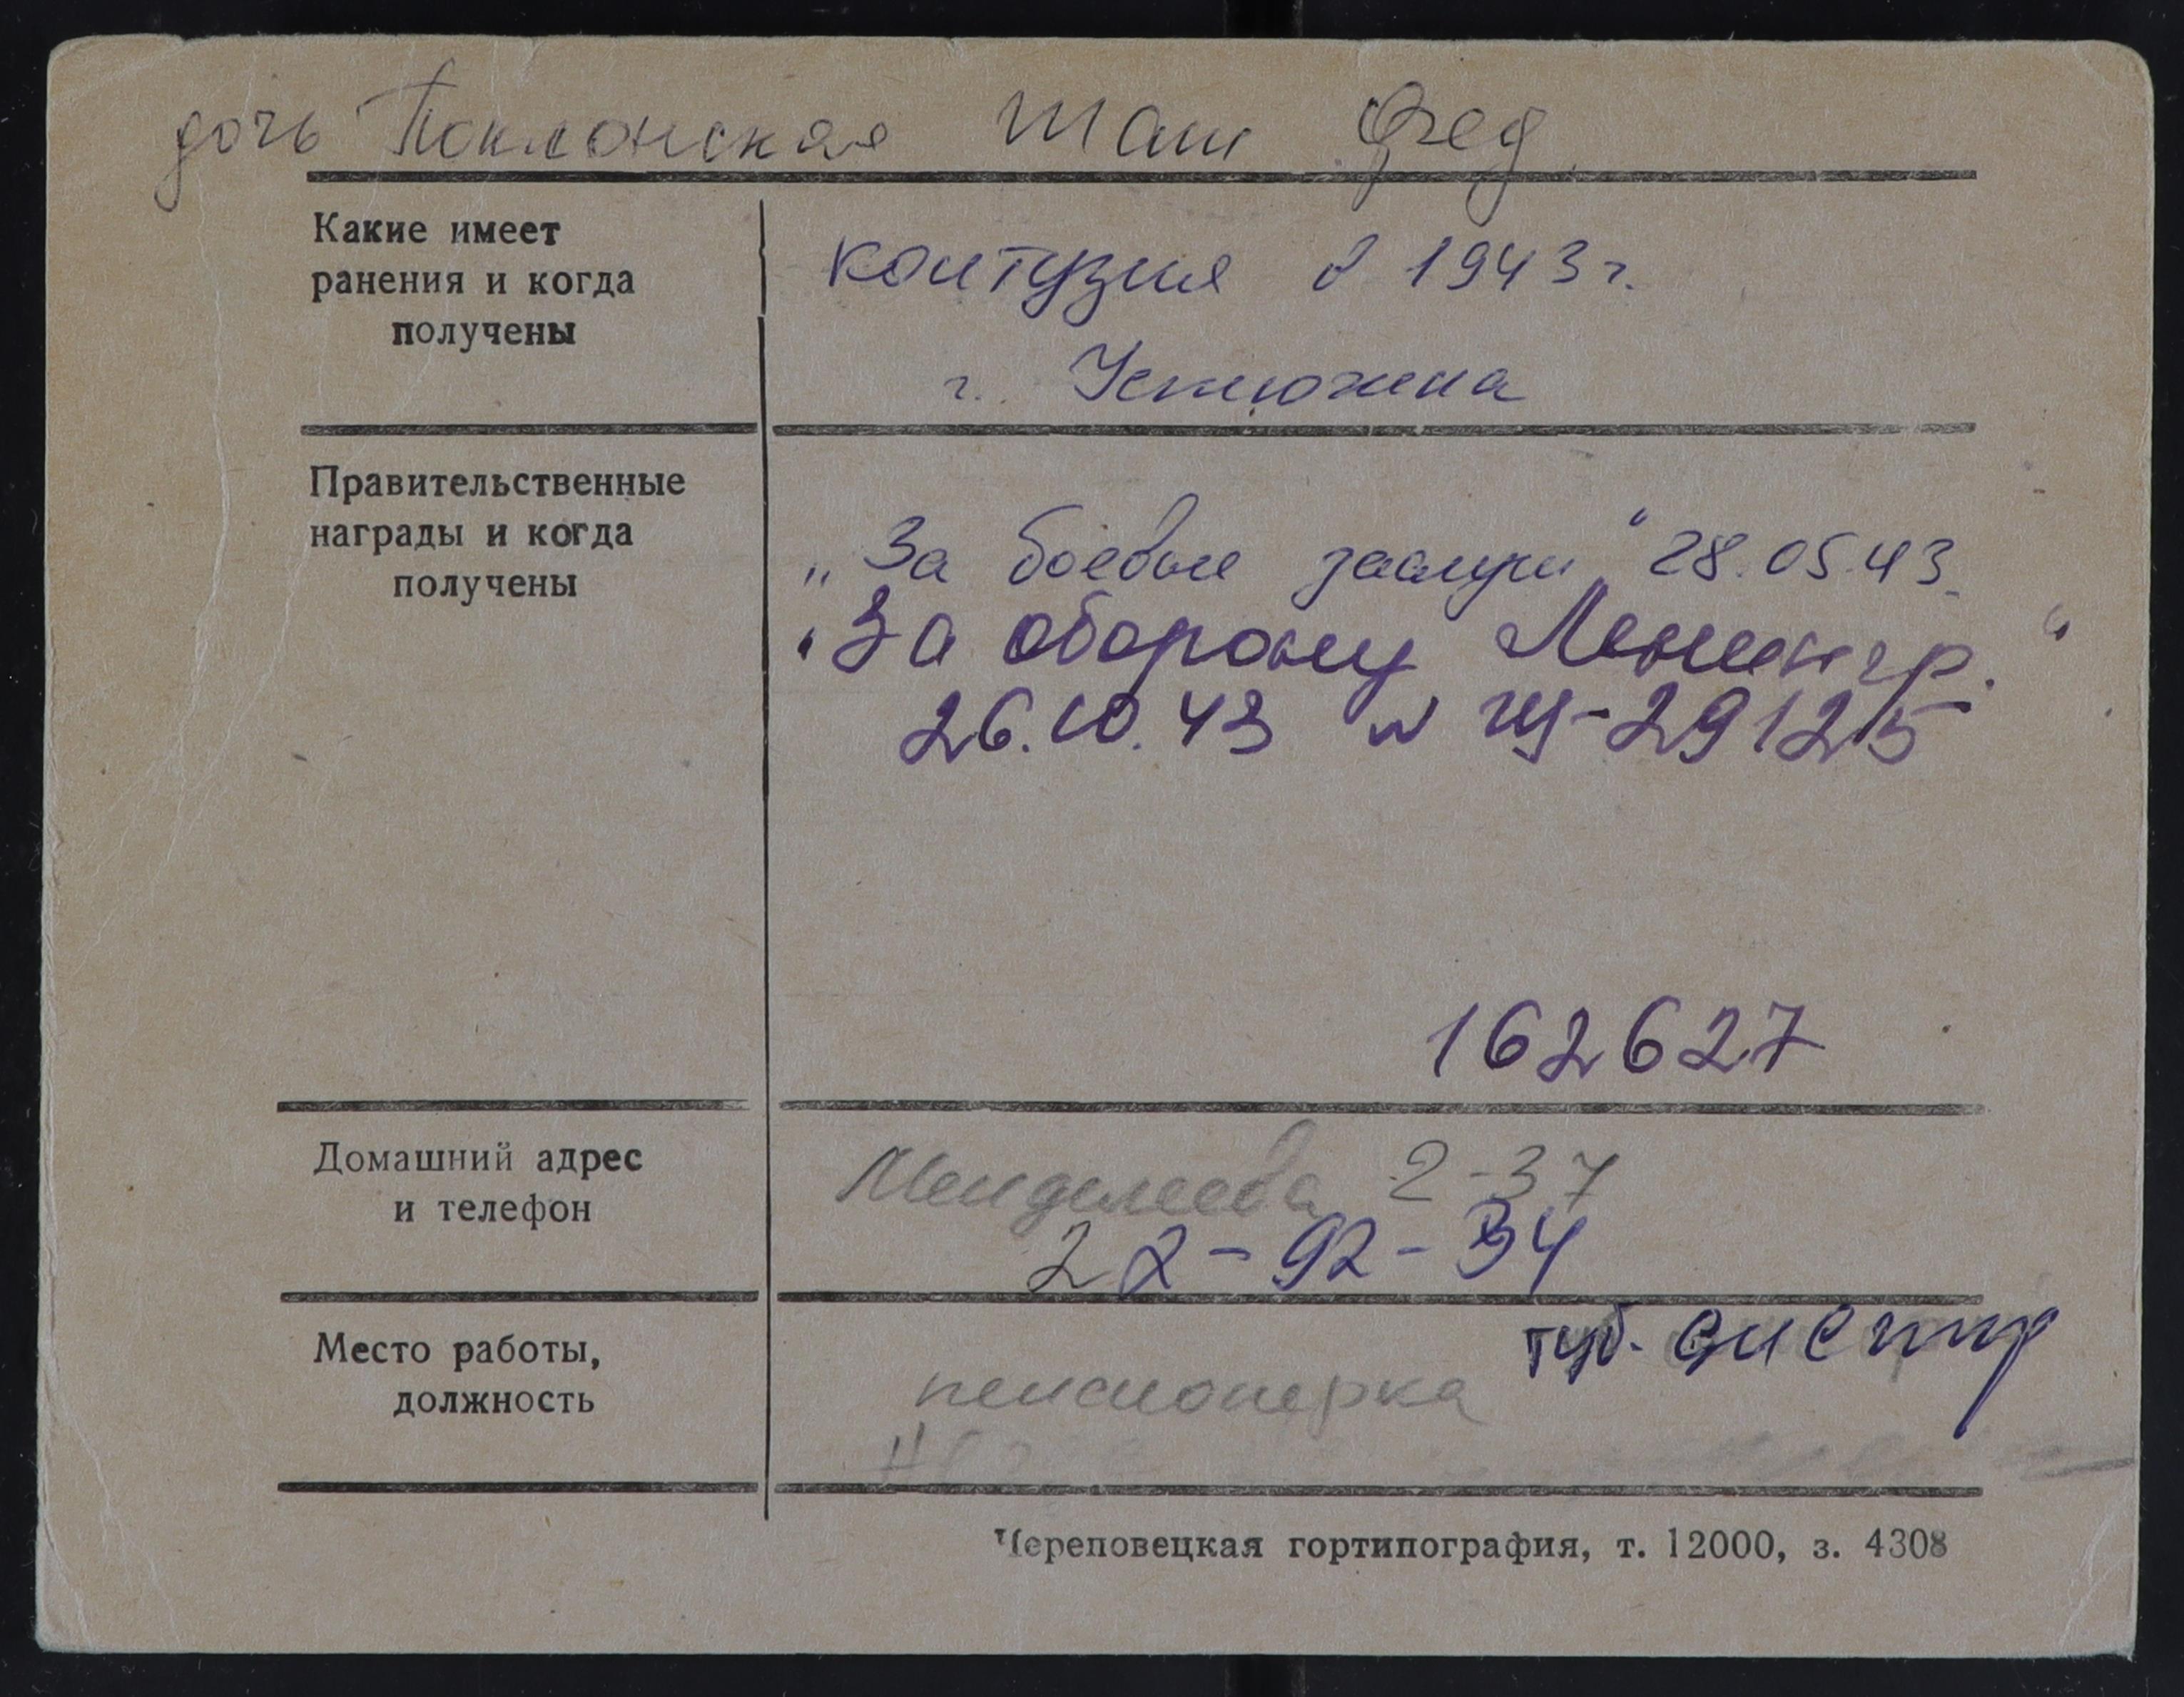 дочь Поклонская Тат Фед.
Какие имеет
ранения и когда
получены
контузия в 1943 г.
г. Устюжна
Правительственные
награды и когда
получены
„За боевые заслуги" 28.05.43.
„За оборону Ленингр."
26.10.43 № Щ-29125
162627
Домашний адрес
и телефон
Менделеева 2-37
22-92-34
Место работы,
должность
туб. диспр
пенсионерка
Череповецкая гортипография, т. 12000, з. 4308